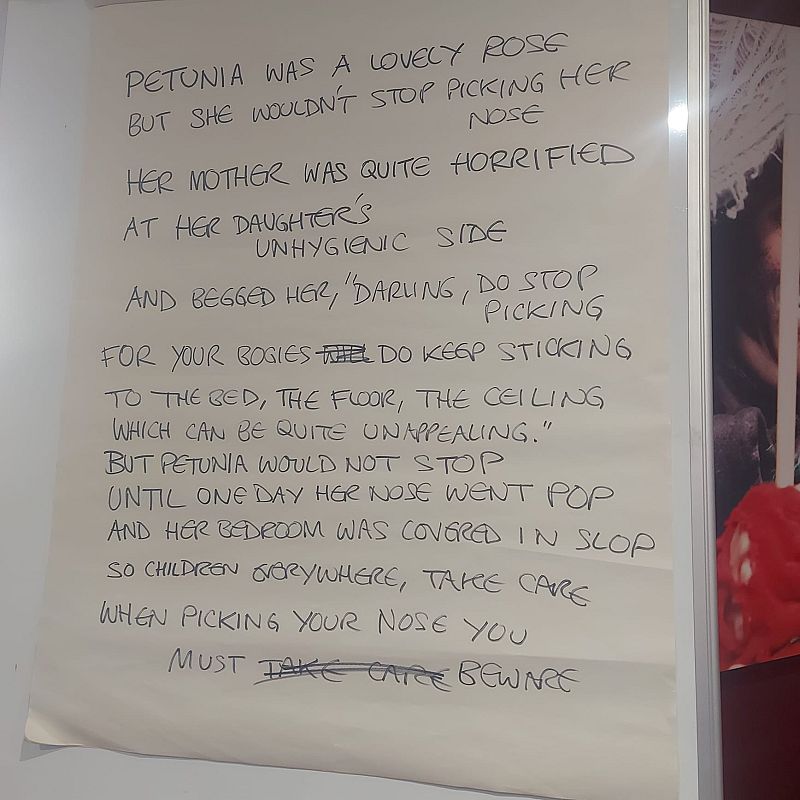 PETUNIA WAS A LOVELY ROSE
BUT SHE WOULDN'T STOP PICKING HER
NOSE
HER MOTHER WAS QUITE HORRIFIED
AT HER DAUGHTER'S
UNHYGIENIC SIDE
AND BEGGED HER, "DARLING, DO STOP
PICKING
FOR YOUR BOGIES DO KEEP STICKING
TO THE BED, THE FLOOR, THE CEILING
WHICH CAN BE QUITE UNAPPEALING."
BUT PETUNIA WOULD NOT STOP
UNTIL ONE DAY HER NOSE WENT POP
AND HER BEDROOM WAS COVERED IN SLOP
SO CHILDREN EVERYWHERE, TAKE CARE
WHEN PICKING YOUR NOSE YOU
MUST TAKE CARE BEWARE